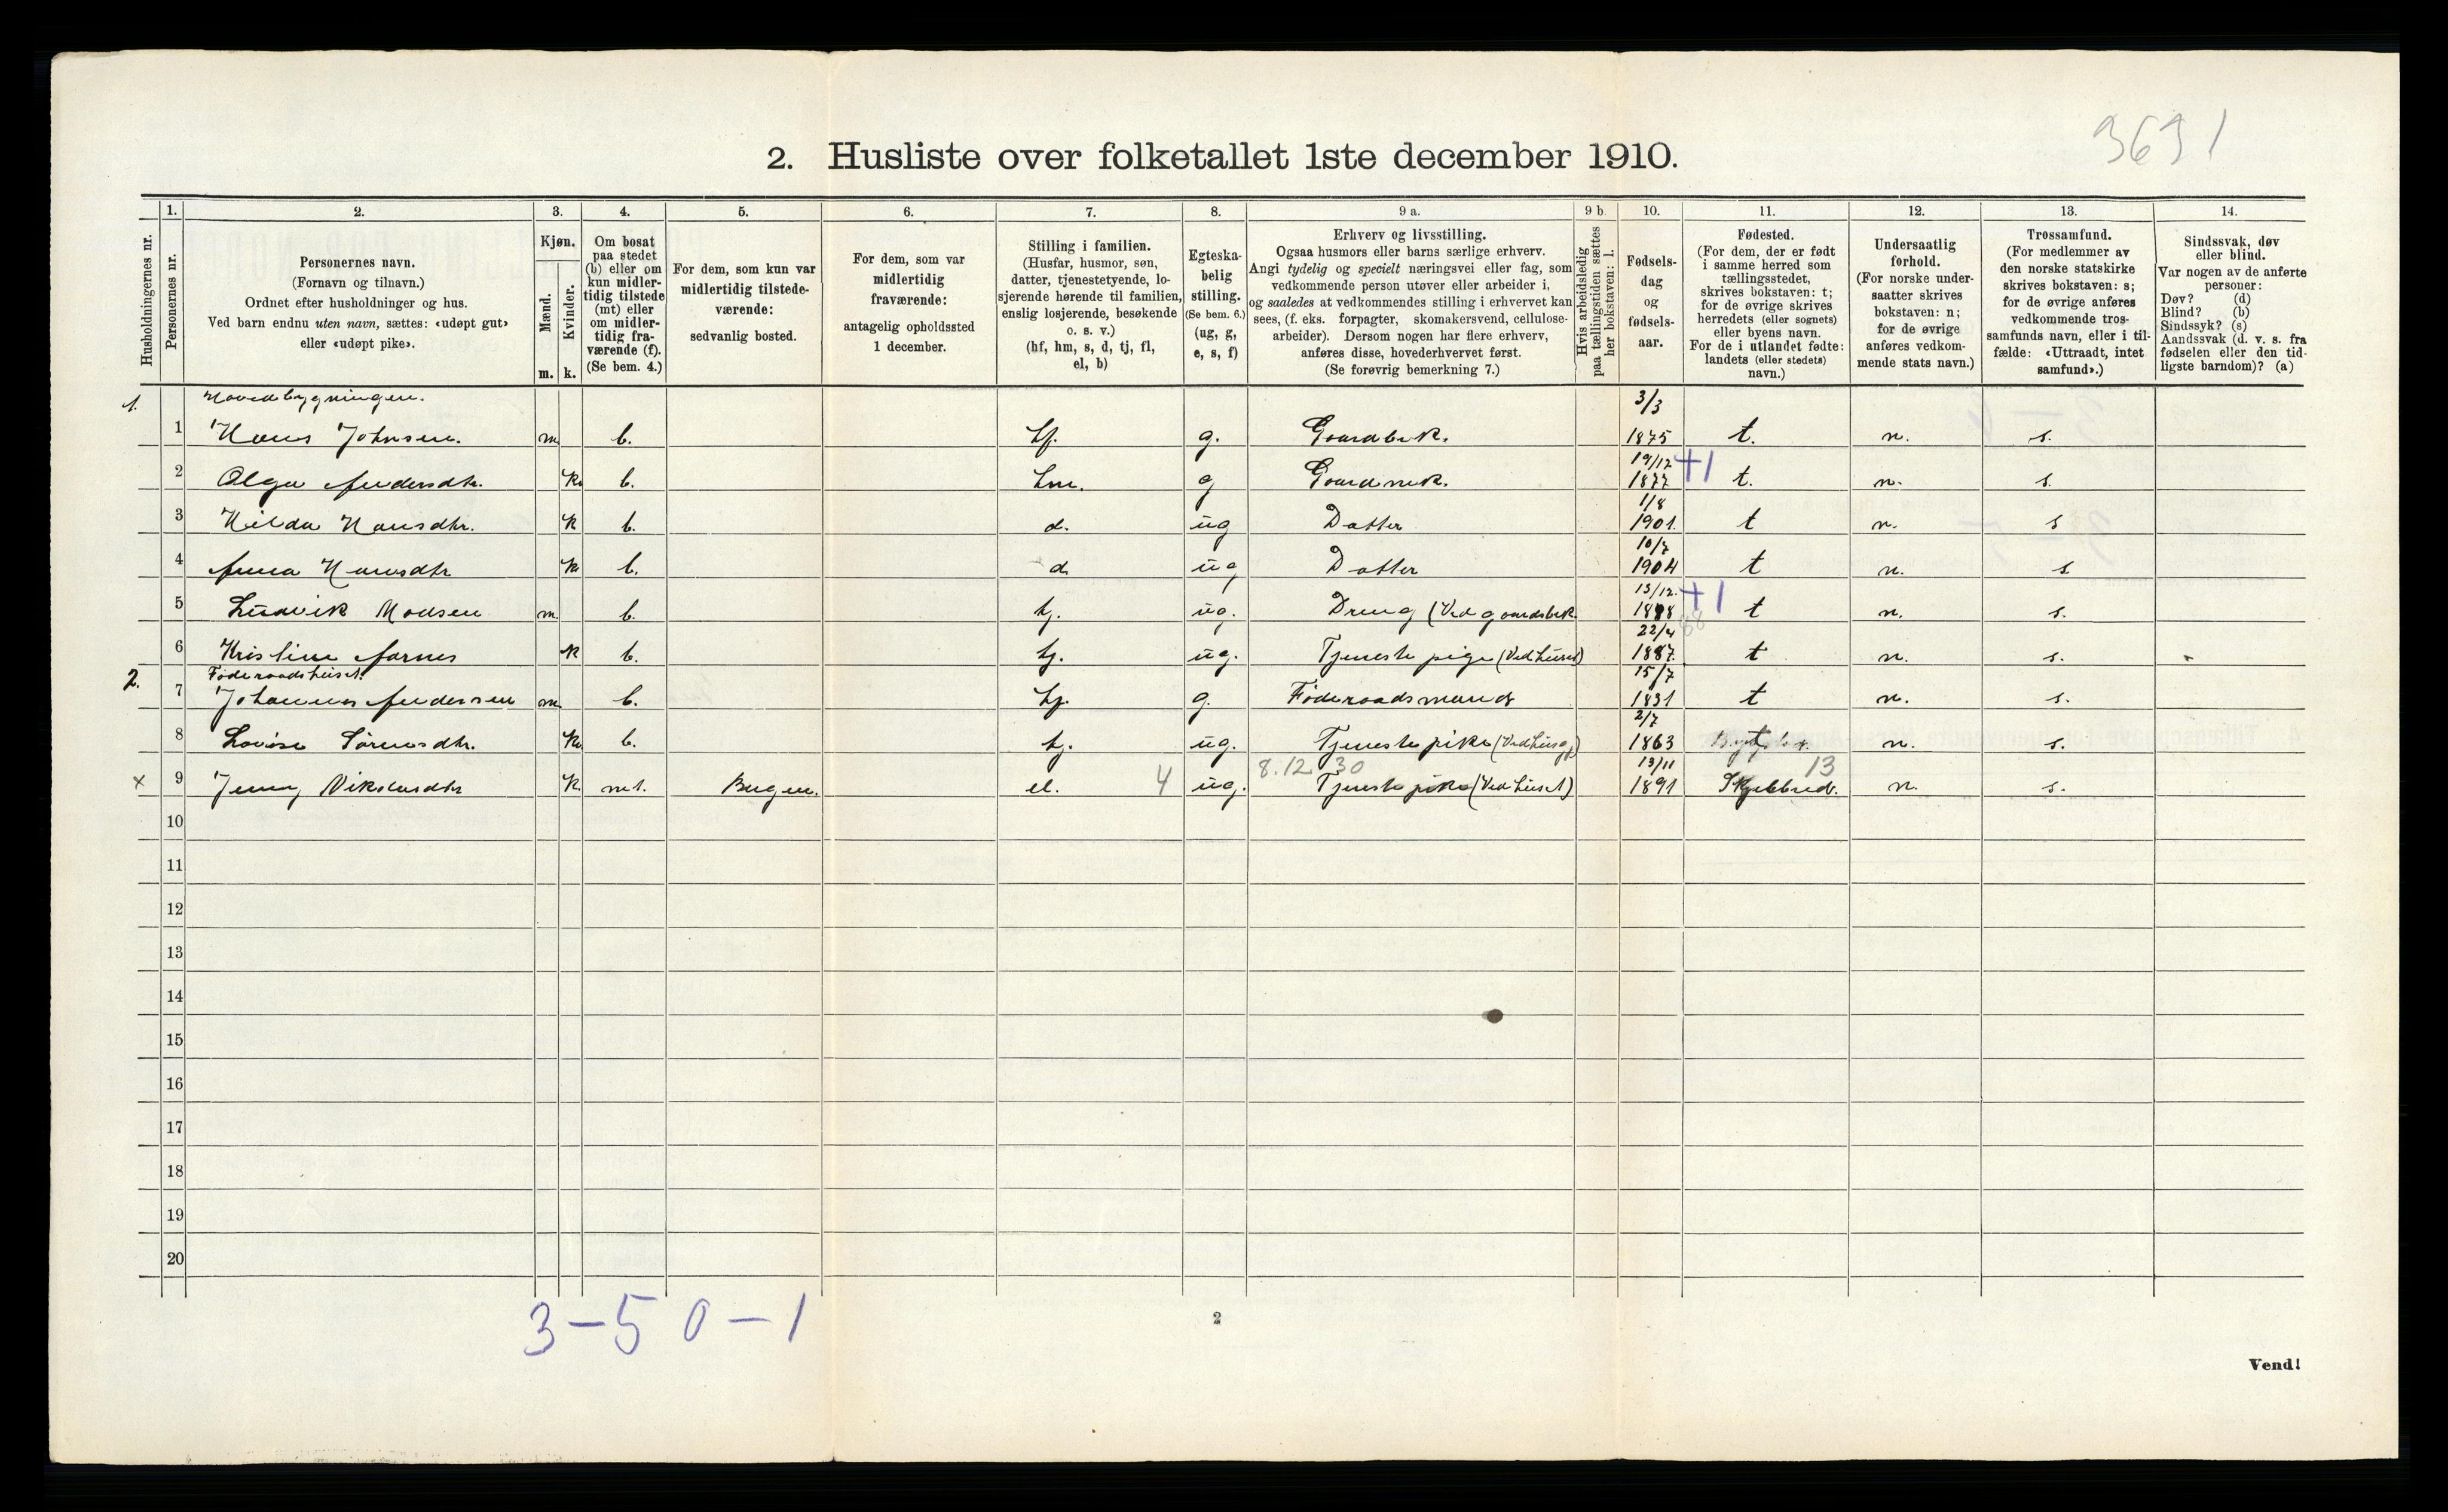 3631
2. Husliste over folketallet 1ste december 1910.
Husholdningernes nr.
1. Personernes nr.
2. Personernes navn. (Fornavn og tilnavn.) Ordnet efter husholdninger og hus. Ved barn endnu uten navn, sættes: «udøpt gut» eller «udøpt pike».
3. Kjøn. Mænd. m. Kvinder. k.
4. Om bosat paa stedet (b) eller om kun midler-tidig tilstede (mt) eller om midler-tidig fra-værende (f). (Se bem. 4.)
5. For dem, som kun var midlertidig tilstede-værende: sedvanlig bosted.
6. For dem, som var midlertidig fraværende: antagelig opholdssted 1 december.
7. Stilling i familien. (Husfar, husmor, søn, datter, tjenestetyende, lo-sjerende hørende til familien, enslig losjerende, besøkende o. s. v.) (hf, hm, s, d, tj, fl, el, b)
8. Egteska-belig stilling. (Se bem. 6.) (ug, g, e, s, f)
9 a. Erhverv og livsstilling. Ogsaa husmors eller barns særlige erhverv. Angi tydelig og specielt næringsvei eller fag, som vedkommende person utøver eller arbeider i, og saaledes at vedkommendes stilling i erhvervet kan sees, (f. eks. forpagter, skomakersvend, cellulose-arbeider). Dersom nogen har flere erhverv, anføres disse, hovederhvervet først. (Se forøvrig bemerkning 7.)
9 b. Hvis arbeidsledig paa tællingstiden sættes her bokstaven: l.
10. Fødsels-dag og fødsels-aar.
11. Fødested. (For dem, der er født i samme herred som tællingsstedet, skrives bokstaven: t; for de øvrige skrives herredets (eller sognets) eller byens navn. For de i utlandet fødte: landets (eller stedets) navn.)
12. Undersaatlig forhold. (For norske under-saatter skrives bokstaven: n; for de øvrige anføres vedkom-mende stats navn.)
13. Trossamfund. (For medlemmer av den norske statskirke skrives bokstaven: s; for de øvrige anføres vedkommende tros-samfunds navn, eller i til-fælde: «Uttraadt, intet samfund».)
14. Sindssvak, døv eller blind. Var nogen av de anførte personer: Døv? (d) Blind? (b) Sindssyk? (s) Aandssvak (d. v. s. fra fødselen eller den tid-ligste barndom)? (a)
1. Hovedbygningen.
1 Hans Johnsen. m b. hf. g. Gaardbruk. 3/3 1875 t. n. s.
2 Olga Andersdtr. k b. hm. g Gaardmek. 19/12 1877 +1 t. n. s.
3 Hilda Hansdtr. k b. d. ug Datter 1/8 1901. t n. s
4 Anna Hansdtr k b. d ug Datter 10/7 1904 t n. s
5 Ludvik Madsen m b. tj. ug. Dreng (Ved gaardsbruk. 13/12. 1888 88 +1 t n. s.
6 Kristine Aarnes k b. tj. ug. Tjeneste pige (Ved huset) 22/4 1887. t n. s.
2. Föderaadshuset.
7 Johannes Andersen m b. hf. g. Föderaadsmand 15/7 1831 t n. s.
8 Lovise Sörensdtr. k b. tj. ug. Tjeneste pike 2/7 1863 n. s.
x 9 Jenny k mt. Bugen. el. 4 ug. 8.12 30 Tjeneste pike (Ved huset) 13/11 1891 Skjebbred. 13 n. s.
10
11
12
13
14
15
16
17
18
19
20
3-5 0-1
2
Vend!